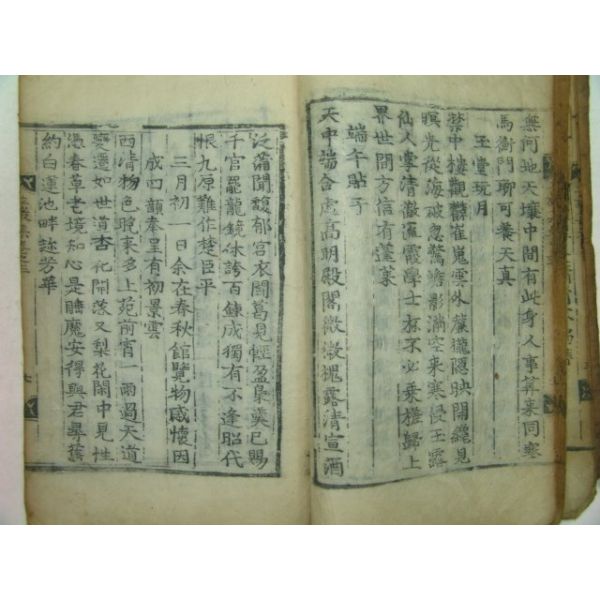 無何地天壤中間有此身人事筭來同塞
馬衡門聊可養天眞
玉堂玩月
禁中樓觀鬱崔嵬雲外簾櫳隱映開纔見
暝光從海破忽驚蟾影滿空來寒侵玉露
仙人掌清徹 霞學士杯不必乘槎歸上
界世間方信有蓬萊
端午貼子
天中端合處高明殿閣微凉槐露清宣酒
泛蒲聞馥郁宮衣閃葛見輕盈梟羹已賜
千官罷龍鏡休誇百鍊成獨有不逢昭代
恨九原難作楚臣平
三月初一日余在春秋館覽物感懷因
成四韻奉呈有初景雲
西淸物色晩來多上苑前宵一雨過天道
變遷如世道杏花開落又梨花閙中見性
憑春草老境知心是睡魔安得與君尋舊
約白蓮池畔趂芳華
七